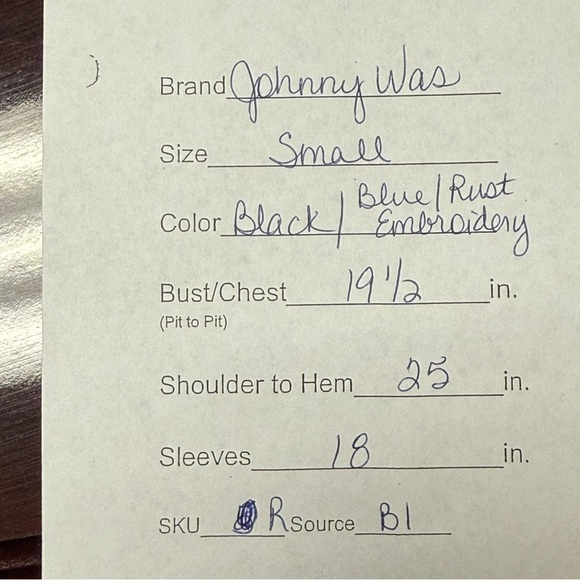 Brand Johnny Was
Size Small
Color Black / Blue / Rust
Embroidery
Bust/Chest 19 1/2 in.
(Pit to Pit)
Shoulder to Hem 25 in.
Sleeves 18 in.
SKU R Source B1